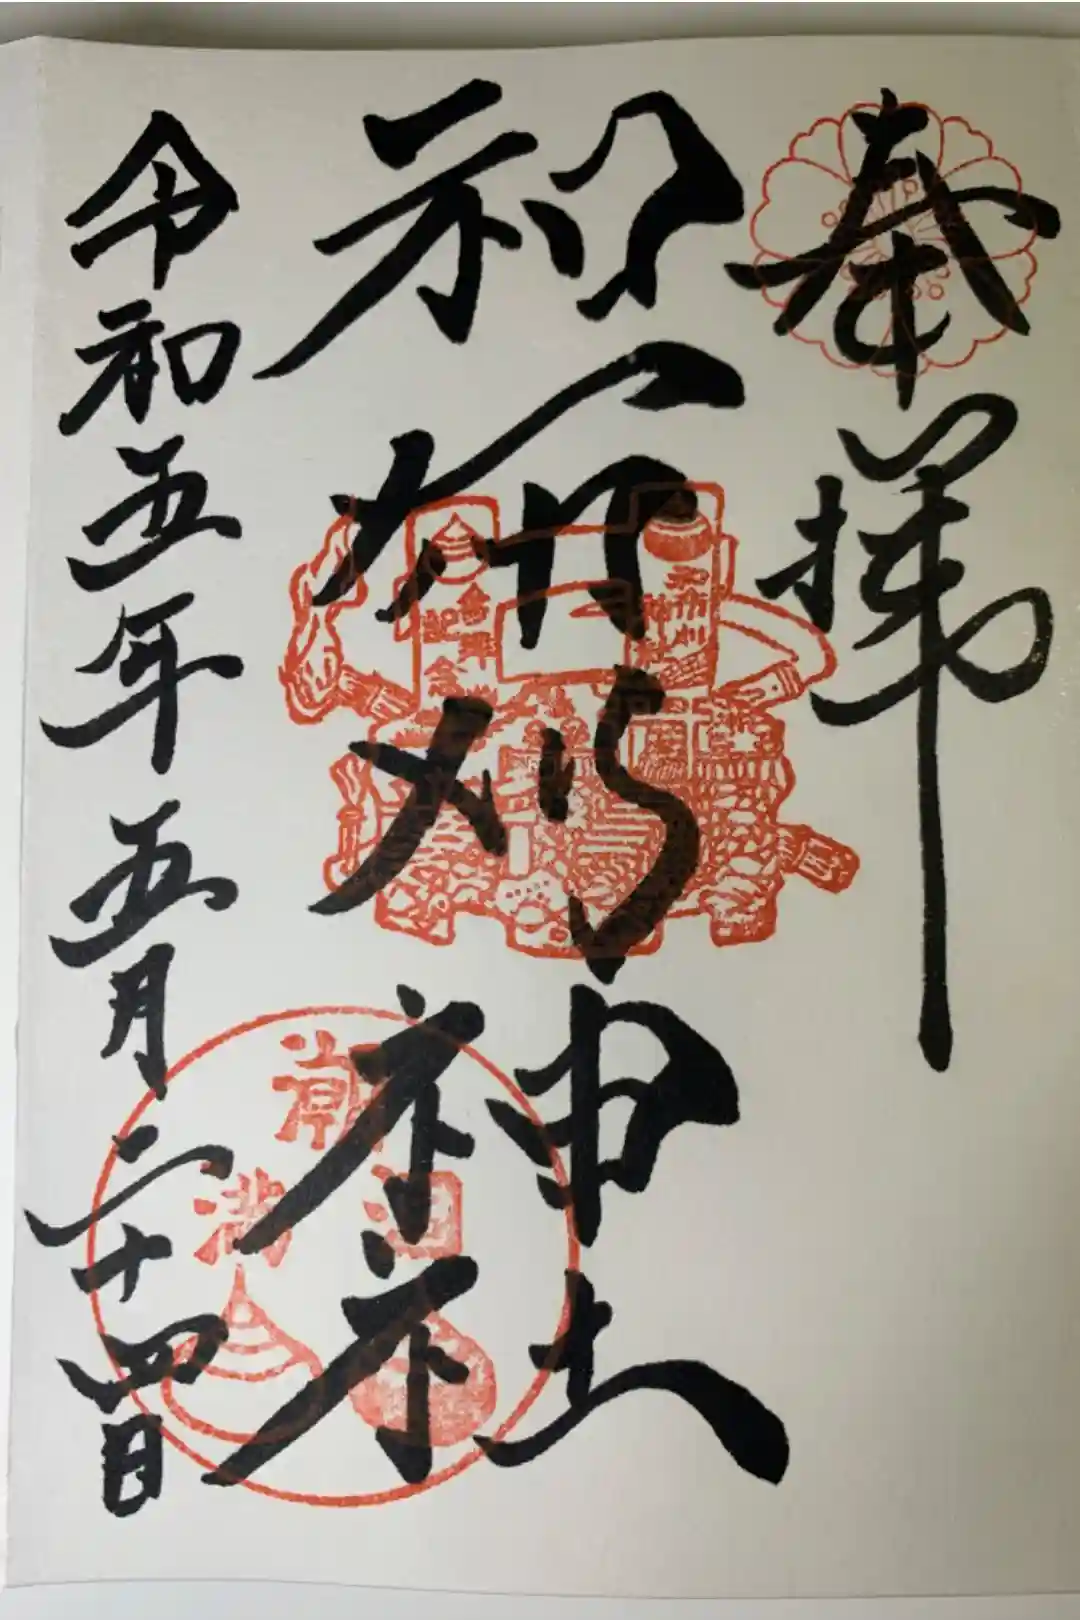 奉拝
和布刈神社
令和五年五月二十四日
和布刈
神社
念
潮
満